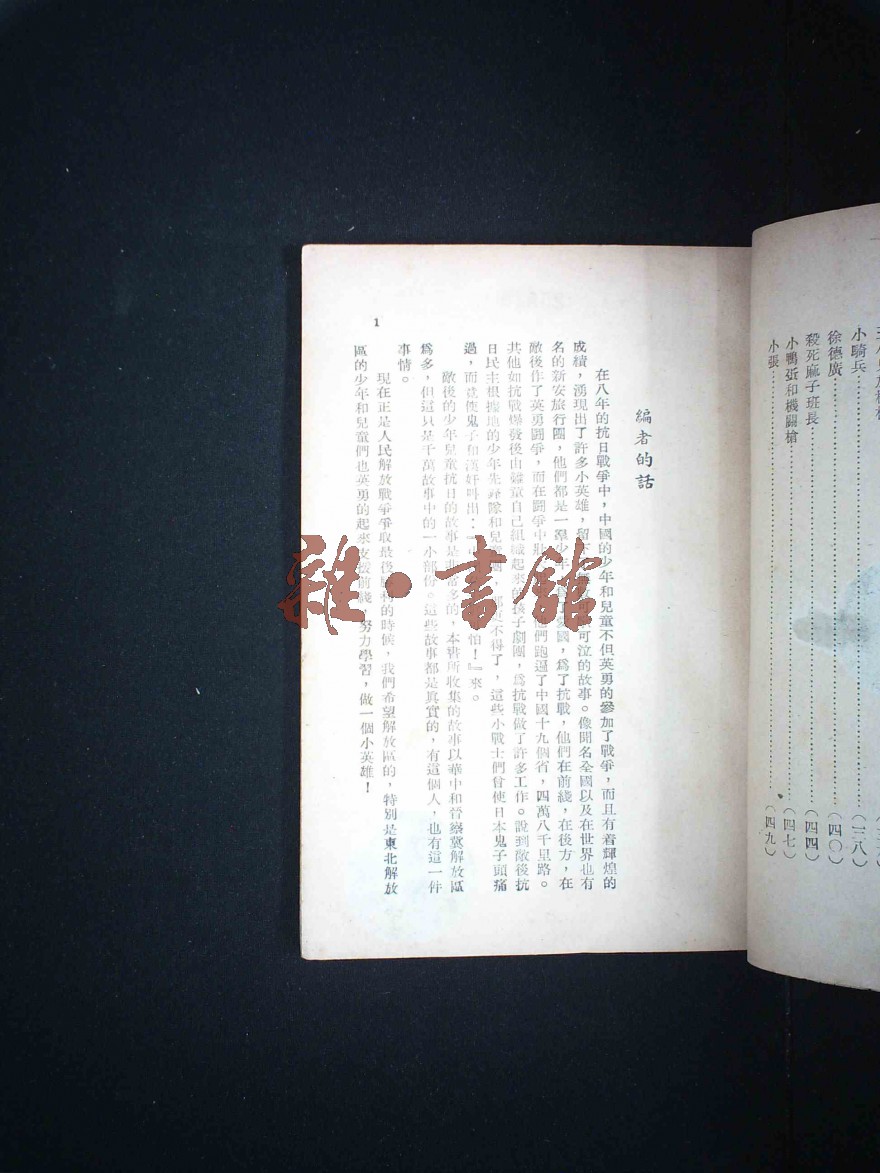 小騎兵………(三八)
徐德廣………(四〇)
殺死麻子班長………(四四)
小鴨蛋和機關槍………(四七)
小張………(四九)
編者的話
在八年的抗日戰爭中，中國的少年和兒童不但英勇的參加了戰爭，而且有着輝煌的
成績，湧現出了許多小英雄，留可泣的故事。像聞名全國以及在世界也有
名的新安旅行團，他們都是一羣少年國，爲了抗戰，他們在前綫，在後方，在
敵後作了英勇鬪爭，而在鬪爭中他們跑遍了中國十九個省，四萬八千里路。
其他如抗戰爆發後由難童自己組織起來的孩子劇團，爲抗戰做了許多工作。說到敵後抗
日民主根據地的少年先鋒隊和兒不得了，這些小戰士們曾使日本鬼子頭痛
過，而竟使鬼子和漢奸叫出：『怕！』來。
敵後的少年兒童抗日的故事是非常多的，本書所收集的故事以華中和晉察冀解放區
爲多，但這只是千萬故事中的一小部份。這些故事都是眞實的，有這個人，也有這一件
事情。
現在正是人民解放戰爭爭取最後勝利的時候，我們希望解放區的，特別是東北解放
區的少年和兒童們也英勇的起來支援前綫，努力學習，做一個小英雄！
1
雜·書館